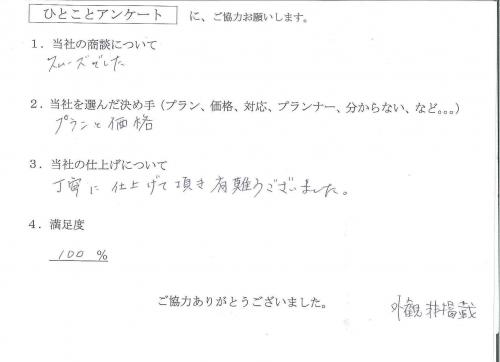 ひとことアンケート に、ご協力お願いします。
1．当社の商談について
スムーズでした
2．当社を選んだ決め手（プラン、価格、対応、プランナー、分からない、など。。。）
プランと価格
3．当社の仕上げについて
丁寧に仕上げて頂き有難うございました。
4．満足度
100 %
ご協力ありがとうございました。
外観非掲載